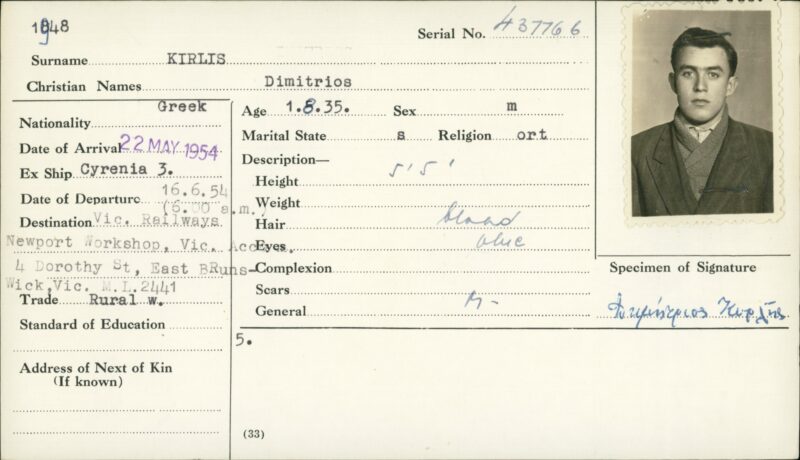 1948
Serial No. 437766
Surname KIRLIS
Christian Names Dimitrios
Nationality Greek
Date of Arrival 22 MAY 1954
Ex Ship Cyrenia 3.
Date of Departure 16.6.54
(6.00 a.m.)
Destination Vic. Railways
Newport Workshop, Vic. Accom.
4 Dorothy St, East BRuns-
Wick, Vic. M.L.2441
Trade Rural w.
Standard of Education
Address of Next of Kin
(If known)
Age 1.8.35. Sex m
Marital State s Religion ort
Description—
Height 5'5'
Weight
Hair bland
Eyes blue
Complexion
Scars
General
5.
(33)
Specimen of Signature
Δημήτριος Κυρλης